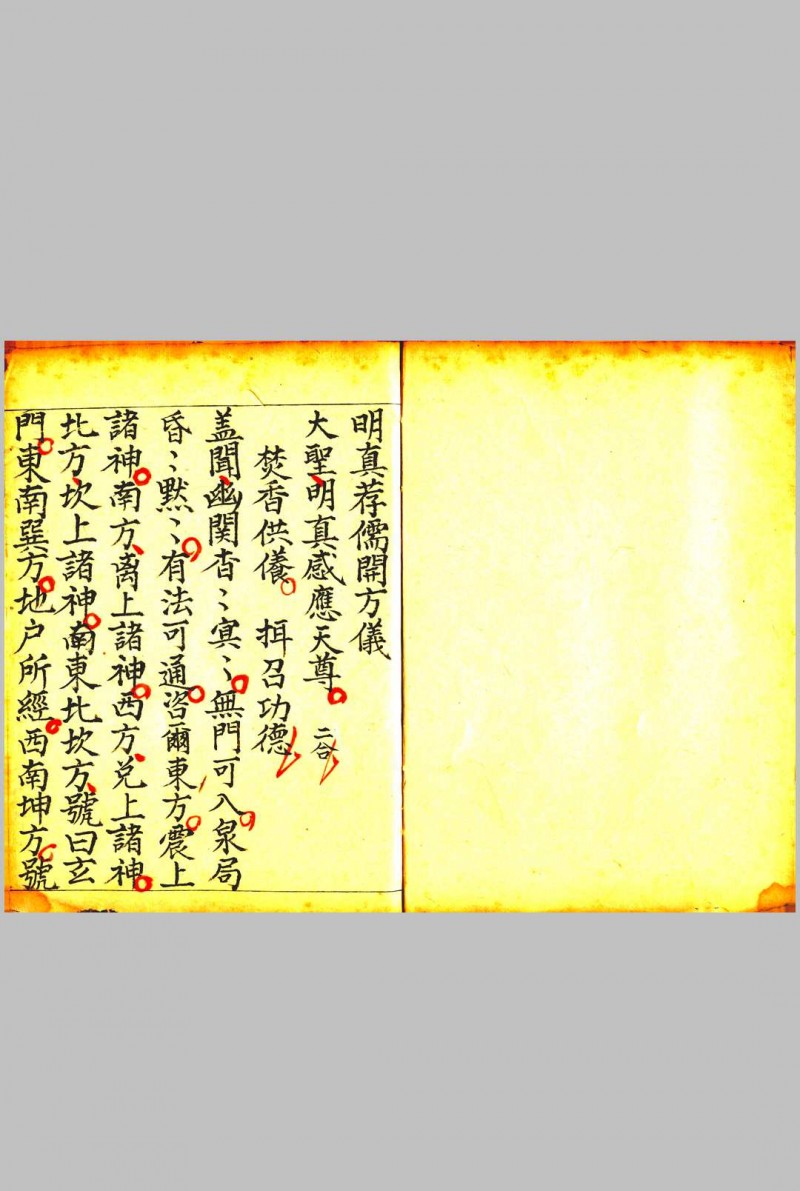 明真荐儒開方儀
大聖明真感應天尊 二合
焚香供儀 揖召功德
盖聞幽関杳〻冥〻無門可入泉局
昏〻黙〻有法可通咨爾東方震上
諸神南方离上諸神西方兑上諸神
北方坎上諸神南東北坎方號曰玄
門東南巽方地户所經西南坤方號